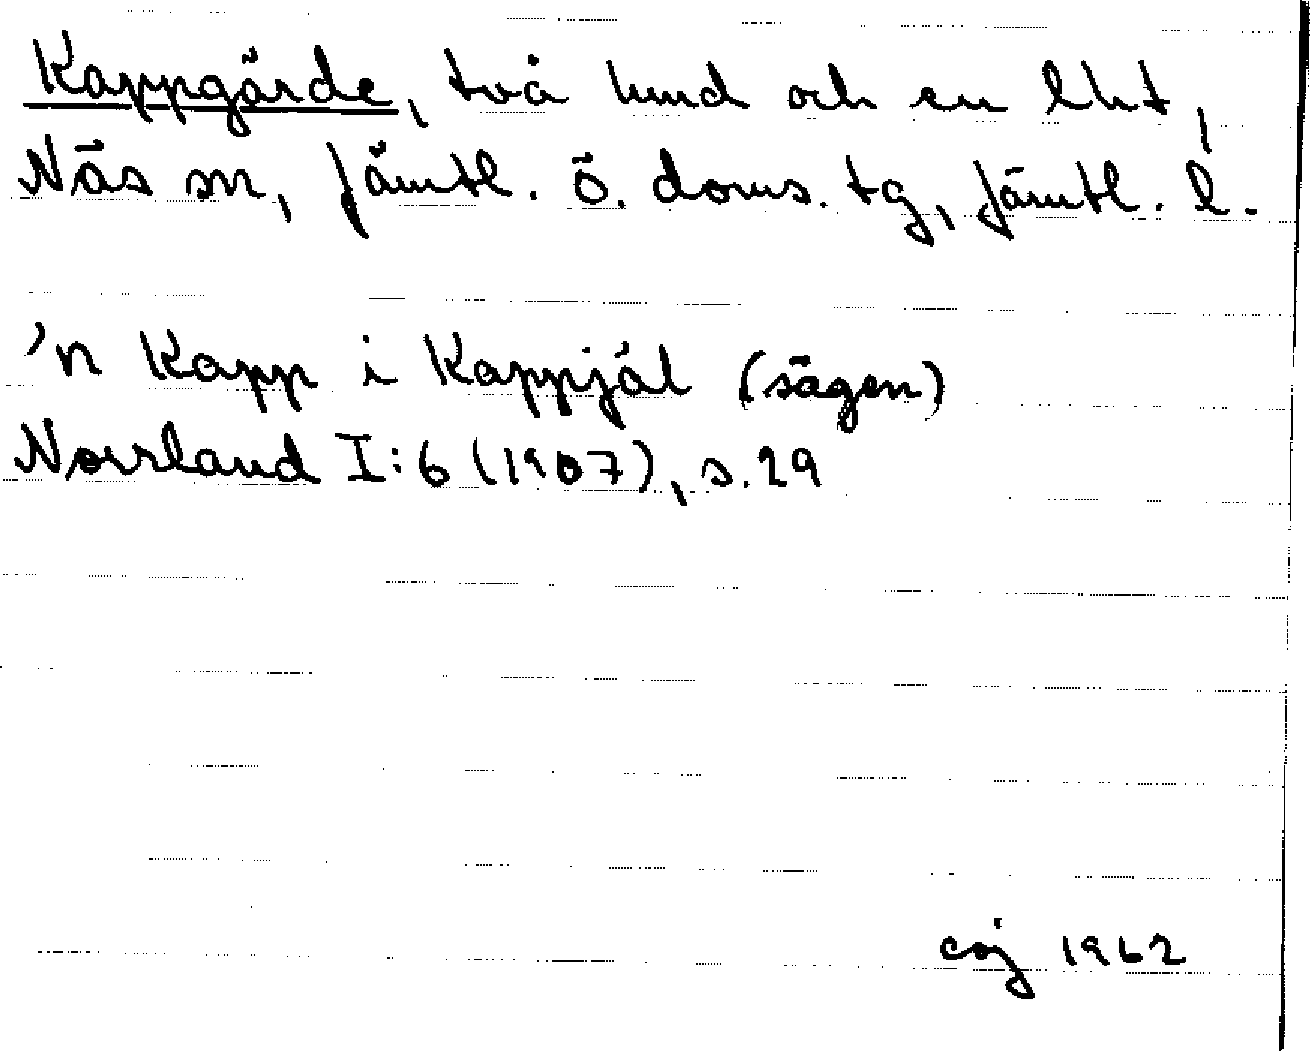 Kappgärde, två hmd och en lht,
Näs sn, Jämtl. ö. doms. tg, Jämtl. l.
'n Kapp i Kappjál (sägen)
Norrland I:6 (1907), s. 29
coj 1962